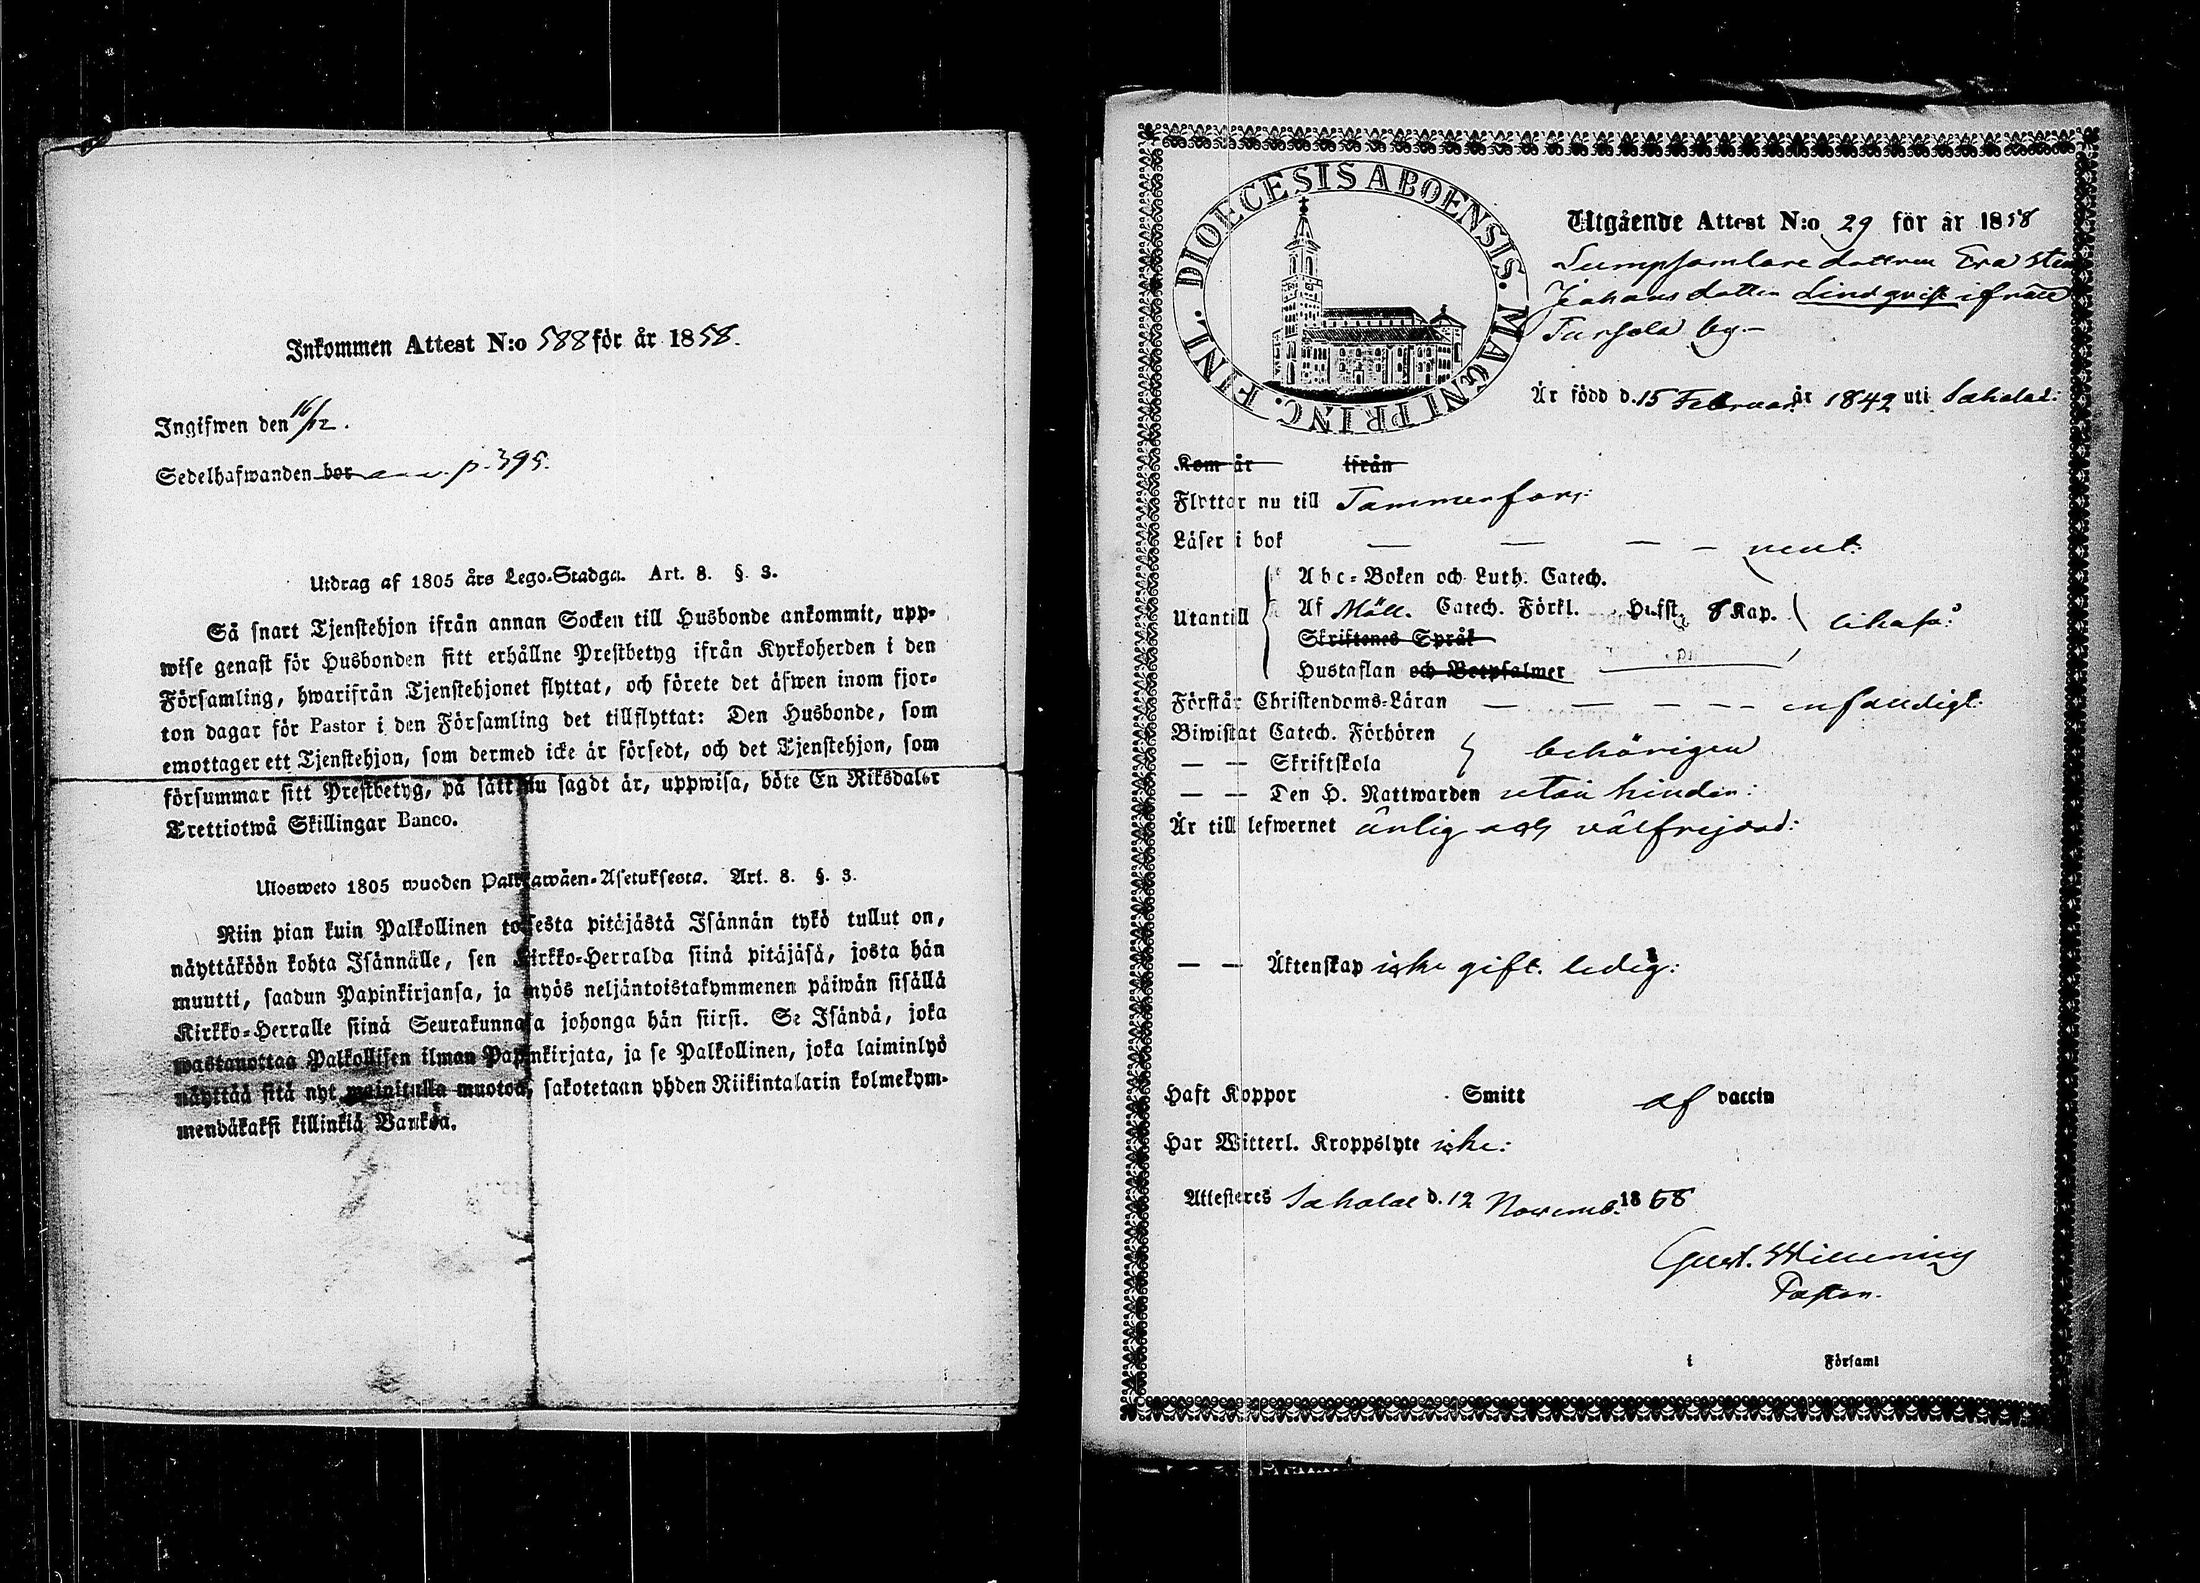 Inkommen Attest N:o 588 för år 1858.
Ingifwen den 16/12.
Sedelhafwanden bor p. 395.
Utdrag af 1805 års Lego-Stadga. Art. 8. §. 3.
Så snart Tjenstehjon ifrån annan Socken till Husbonde ankommit, upp-
wise genast för Husbonden sitt erhållne Prestbetyg ifrån Kyrkoherden i den
Församling, hwarifrån Tjenstehjonet flyttat, och förete det äfwen inom fjor-
ton dagar för Pastor i den Församling det tillflyttat: Den Husbonde, som
emottager ett Tjenstehjon, som dermed icke är försedt, och det Tjenstehjon, som
försummar sitt Prestbetyg, på sätt nu sagdt är, uppwisa, böte En Riksdaler
Trettiotwå Skillingar Banco.
Ulosweto 1805 wuoden Palkkawäen-Asetuksesta. Art. 8. §. 3.
Niin pian kuin Palkollinen toisesta pitäjästä Isännän tykö tullut on,
näyttäköön kohta Isännälle, sen Kirkko-Herralda siinä pitäjäsä, josta hän
muutti, saadun Papinkirjansa, ja myös neljäntoistakymmenen päiwän sisällä
Kirkko-Herralle siinä Seurakunnasa johonga hän siirsi. Se Isändä, joka
wastanottaa Palkollisen ilman Papinkirjata, ja se Palkollinen, joka laiminlyö
näyttää sitä nyt mainitulla muotoa, sakotetaan yhden Riikintalarin kolmekym-
mendäkaksi killinkiä Bankoa.
FINL. DIOECESIS ABOENSIS. MAGNI PRINC.
Utgående Attest N:o 29 för år 1858
Lumpsamlare dottren Eva Stina
Johansdotter Lindqvist ifrån
by
År född d. 15 Februari år 1842 uti Sahalax:
Kom år ifrån
Flyttar nu till Tammerfors:
Läser i bok — — — — rent:
Abc-Boken och Luth. Catech.
Utantill Af Möll. Catech. Förkl. Hufst. 8 Kap. likaså:
Skriftenes Språk
Hustaflan och Botpsalmer
Förstår Christendoms-Läran — — — — — enfaldigt:
Biwistat Catech. Förhören
— — Skriftskola behörigen
— — Den H. Nattwarden utan hinder:
År till lefwernet ärlig och välfrejdad:
— — Äktenskap icke gift. ledig:
Haft Koppor Smitt af vaccin
Har Witterl. Kroppslyte icke:
Attesteres Sahalax d. 12 Novemb. 1858
Gust. Wilenius
Pastor.
i Församl